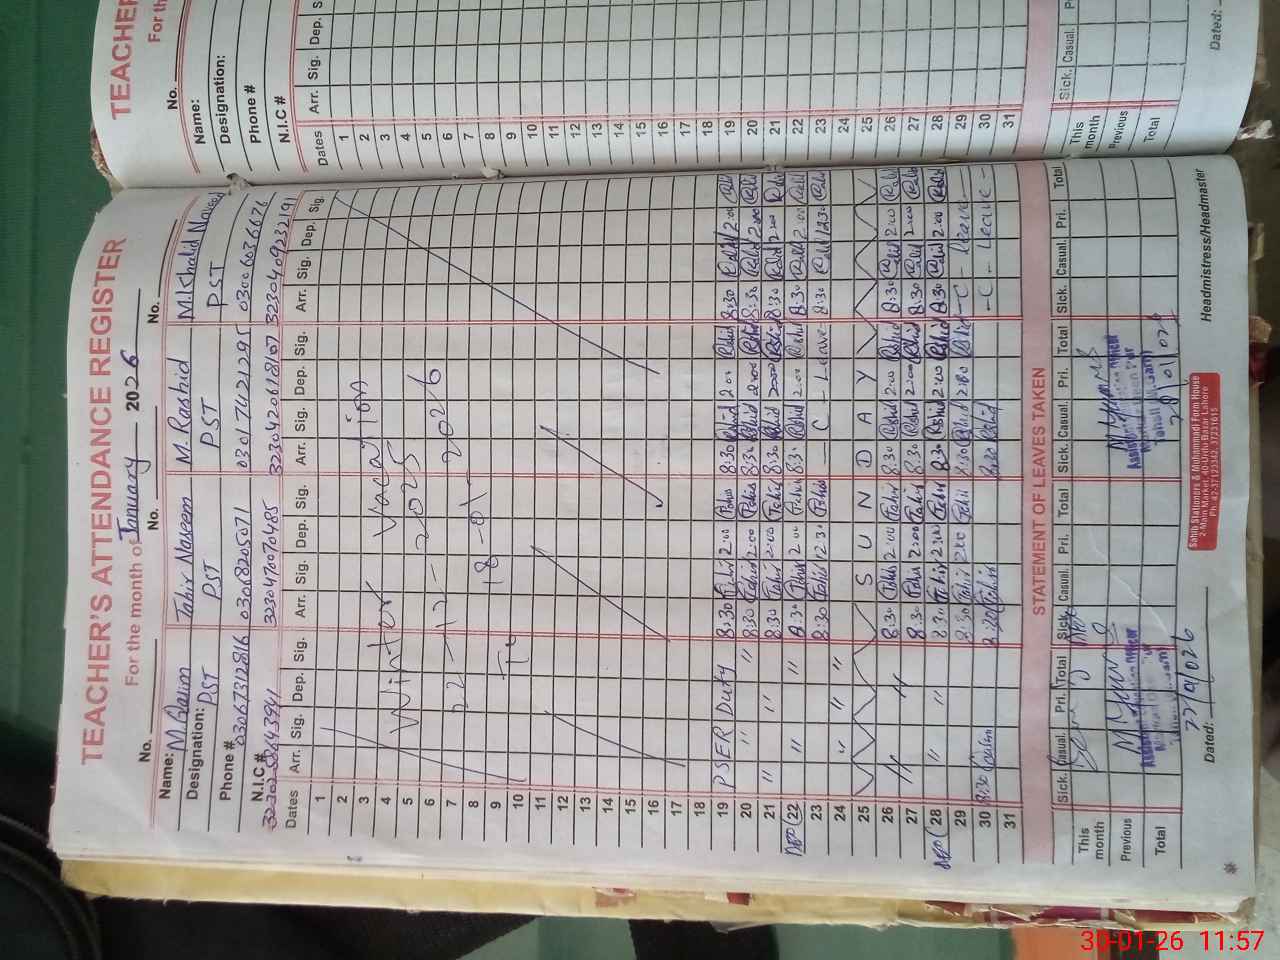 TEACHER'S ATTENDANCE REGISTER
For the month of January 2026
No. No. No.
Name: M Qasim Tahir Naseem M. Rashid M. Khalid Naveed
Designation: PST PST PST PST
Phone # 03067312816 03068205071 03017421295 03006036676
N.I.C # 3230470070485 3230420618107 3230409232191
Dates Arr. Sig. Dep. Sig. Arr. Sig. Dep. Sig. Arr. Sig. Dep. Sig. Arr. Sig. Dep. Sig.
1
2
3
4 Winter Vacation
5
6 22-12-2025
7
8 To 18-01-2026
9
10
11
12
13
14
15
16
17
18
19 PSER Duty 8:30 Tahir 2:00 Tahir 8:30 Rashid 2:00 Rashid 8:30 2:00
20 " " 8:30 Tahir 2:00 Tahir 8:30 Rashid 2:00 Rashid 8:30 2:00
21 " " 8:30 Tahir 2:00 Tahir 8:30 Rashid 2:00 Rashid 8:30 2:00
22 " " 8:30 Tahir 2:00 Tahir 8:30 Rashid 2:00 Rashid 8:30 2:00
23 8:30 Tahir 12:30 Tahir — C - Leave - 8:30 12:30
24 " " "
25 S U N D A Y
26 " " 8:30 Tahir 2:00 Tahir 8:30 Rashid 2:00 Rashid 8:30 2:00
27 8:30 Tahir 2:00 Tahir 8:30 Rashid 2:00 Rashid 8:30 2:00
28 " " 8:30 Tahir 2:00 Tahir 8:30 Rashid 2:00 Rashid 8:30 2:00
29 8:30 Tahir 2:00 Tahir 8:30 Rashid 2:00 Rashid - C - Leave -
30 8:30 Qasim 8:30 Tahir 8:30 Rashid - C - Leave -
31
STATEMENT OF LEAVES TAKEN
Sick. Casual. Pri. Total Sick. Casual. Pri. Total Sick. Casual. Pri. Total Sick. Casual. Pri. Total
This month
Previous
Total
22/01/026
28/01/026
Dated: Headmistress/Headmaster
Sahib Stationers & Muhammadi Form House
2-Main Market, 40-Urdu Bazar Lahore
Ph: 42-37123342, 37231015
TEACHER
For the
No.
Name:
Designation:
Phone #
N.I.C #
Dates Arr. Sig. Dep.
1
2
3
4
5
6
7
8
9
10
11
12
13
14
15
16
17
18
19
20
21
22
23
24
25
26
27
28
29
30
31
Sick. Casual.
This month
Previous
Total
Dated:
30-01-26 11:57